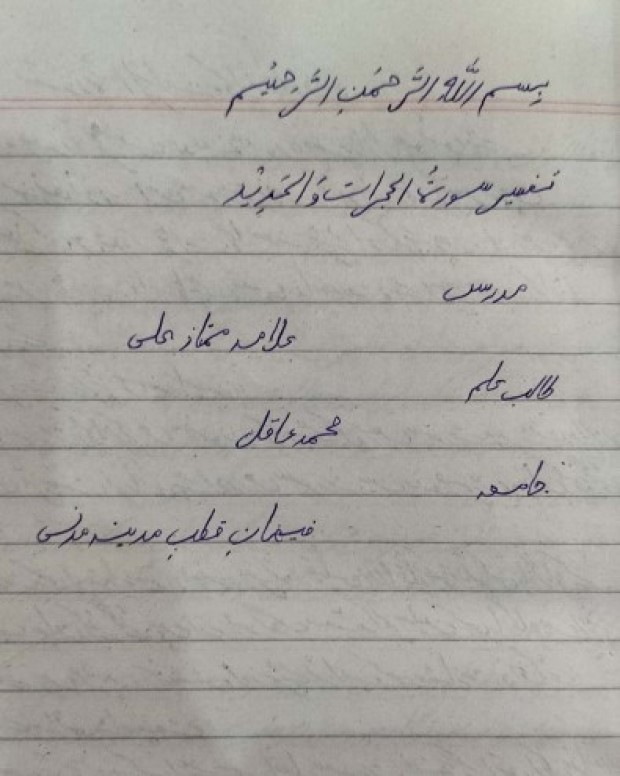 بِسم اللّٰہِ الرَّحمٰنِ الرَّحِیْم
تفسیر سورۃُ الحجرات وَالحَدِیْد
مدرس
علامہ ممتاز علی
طالب علم
محمد عاقل
جامعہ
فیضانِ قطبِ مدینہ